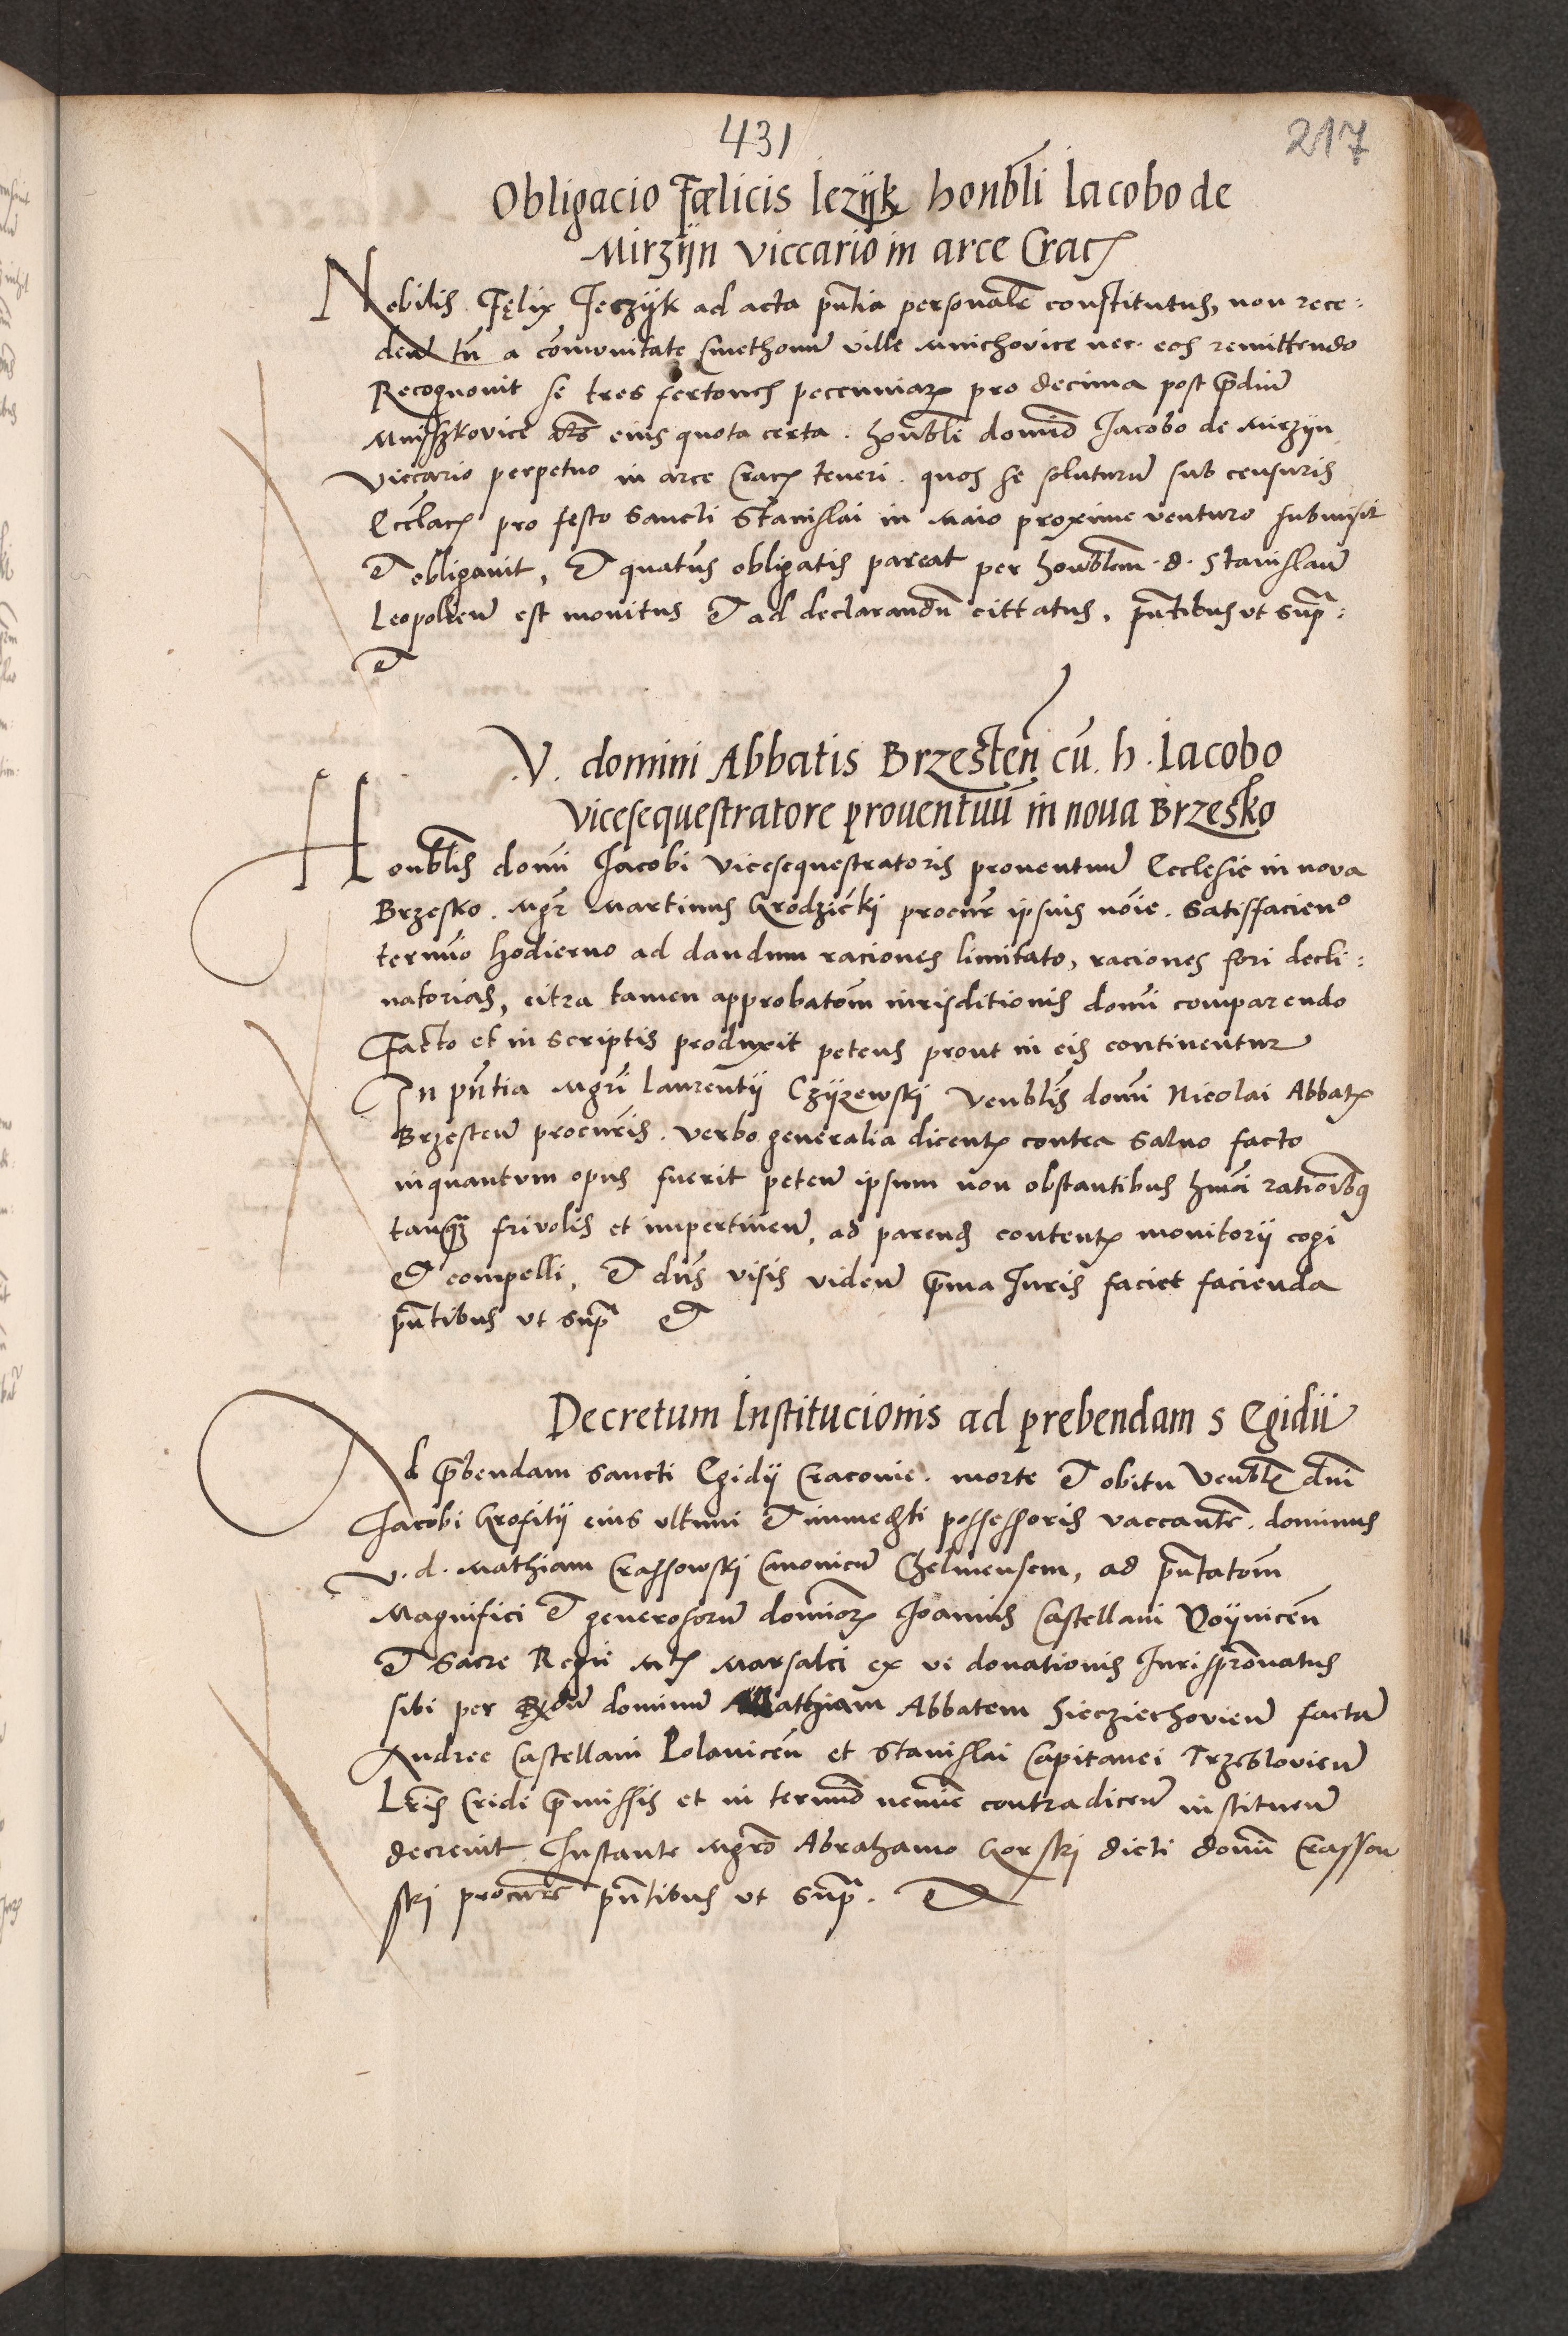 431
217
Obligacio Fælicis Iezyk honbli Iacobo de
Mirzijn viccario in arce Crac
Nobilis Fęlix Jerzyk ad acta pntia personalr constitutus, non rece:
den tn a comunitate cmethonu ville Mnichovice nec eos remittendo
Recognovit se tres fertones peccuniar pro decima post prediu
Mniszkovice eius quota certa. honbli domino Iacobo de Mirzyn
Viccario perpetuo in arce Crac teneri. quos se soluturu sub censuris
Ecclac pro festo Sancti Stanislai in Maio proxime venturo submisit
Et obligavit, Et quatus obligatis pareat per honblem. d. Stanislau
Leopolien est monitus Et ad declarandu cittatus, pntibus ut supra:
Et
V. domini Abbatis Brzesten cu. h. Iacobo
vicesequestratore proventuu in nova Brzesko
Honblis domi Iacobi vicesequestratoris proventuu Ecclesie in nova
Brzesko. Mgr Martinus Grodzicki procur ipsius noie. satisfaciendo
termino hodierno ad dandum raciones limitato, raciones fori decli:
natorias, citra tamen approbatom iurisditionis domi comparendo
Facto et in scriptis produxit petens prout in eis continentur
In pntia Mgri Laurentij Czyzewski venblis domi Nicolai Abbatis
Brzesten procuris. verbo generalia dicentis contra salvo facto
inquantum opus fuerit peten ipsum non obstantibus hmoi rationibus
tanquam frivolis et impertinen, ad parend contentis monitorij cogi
Et compelli, Et dns visis viden prima Iuris faciet facienda
pntibus ut supra Et
Decretum Institucionis ad prebendam s Egidii
Ad prebendam sancti Egidij Cracovie. morte Et obitu venblis dni
Iacobi Grofitij eius ultimi Et immediti possessoris vaccante. dominus
v. d. Mathiam Crassowski Canonicu Chelmensem, ad pntatom
Magnifici Et generosoru dominor Ioannis Castellani Voijnicen
Et Sacre Regie Mtis Marsalci ex vi donationis Iurispronatus
sibi per Rndu dominu Mathiam Abbatem Sieciechovien factam
Andree Castellani Polanicen et Stanislai Capitanei Trzeblovien
Lris Cridi premissis et in termino nemine contradicen instituen
decrevit Instante Mgro Abrahamo Gorski dicti domi Crassow
ski procure pntibus ut supra. Et